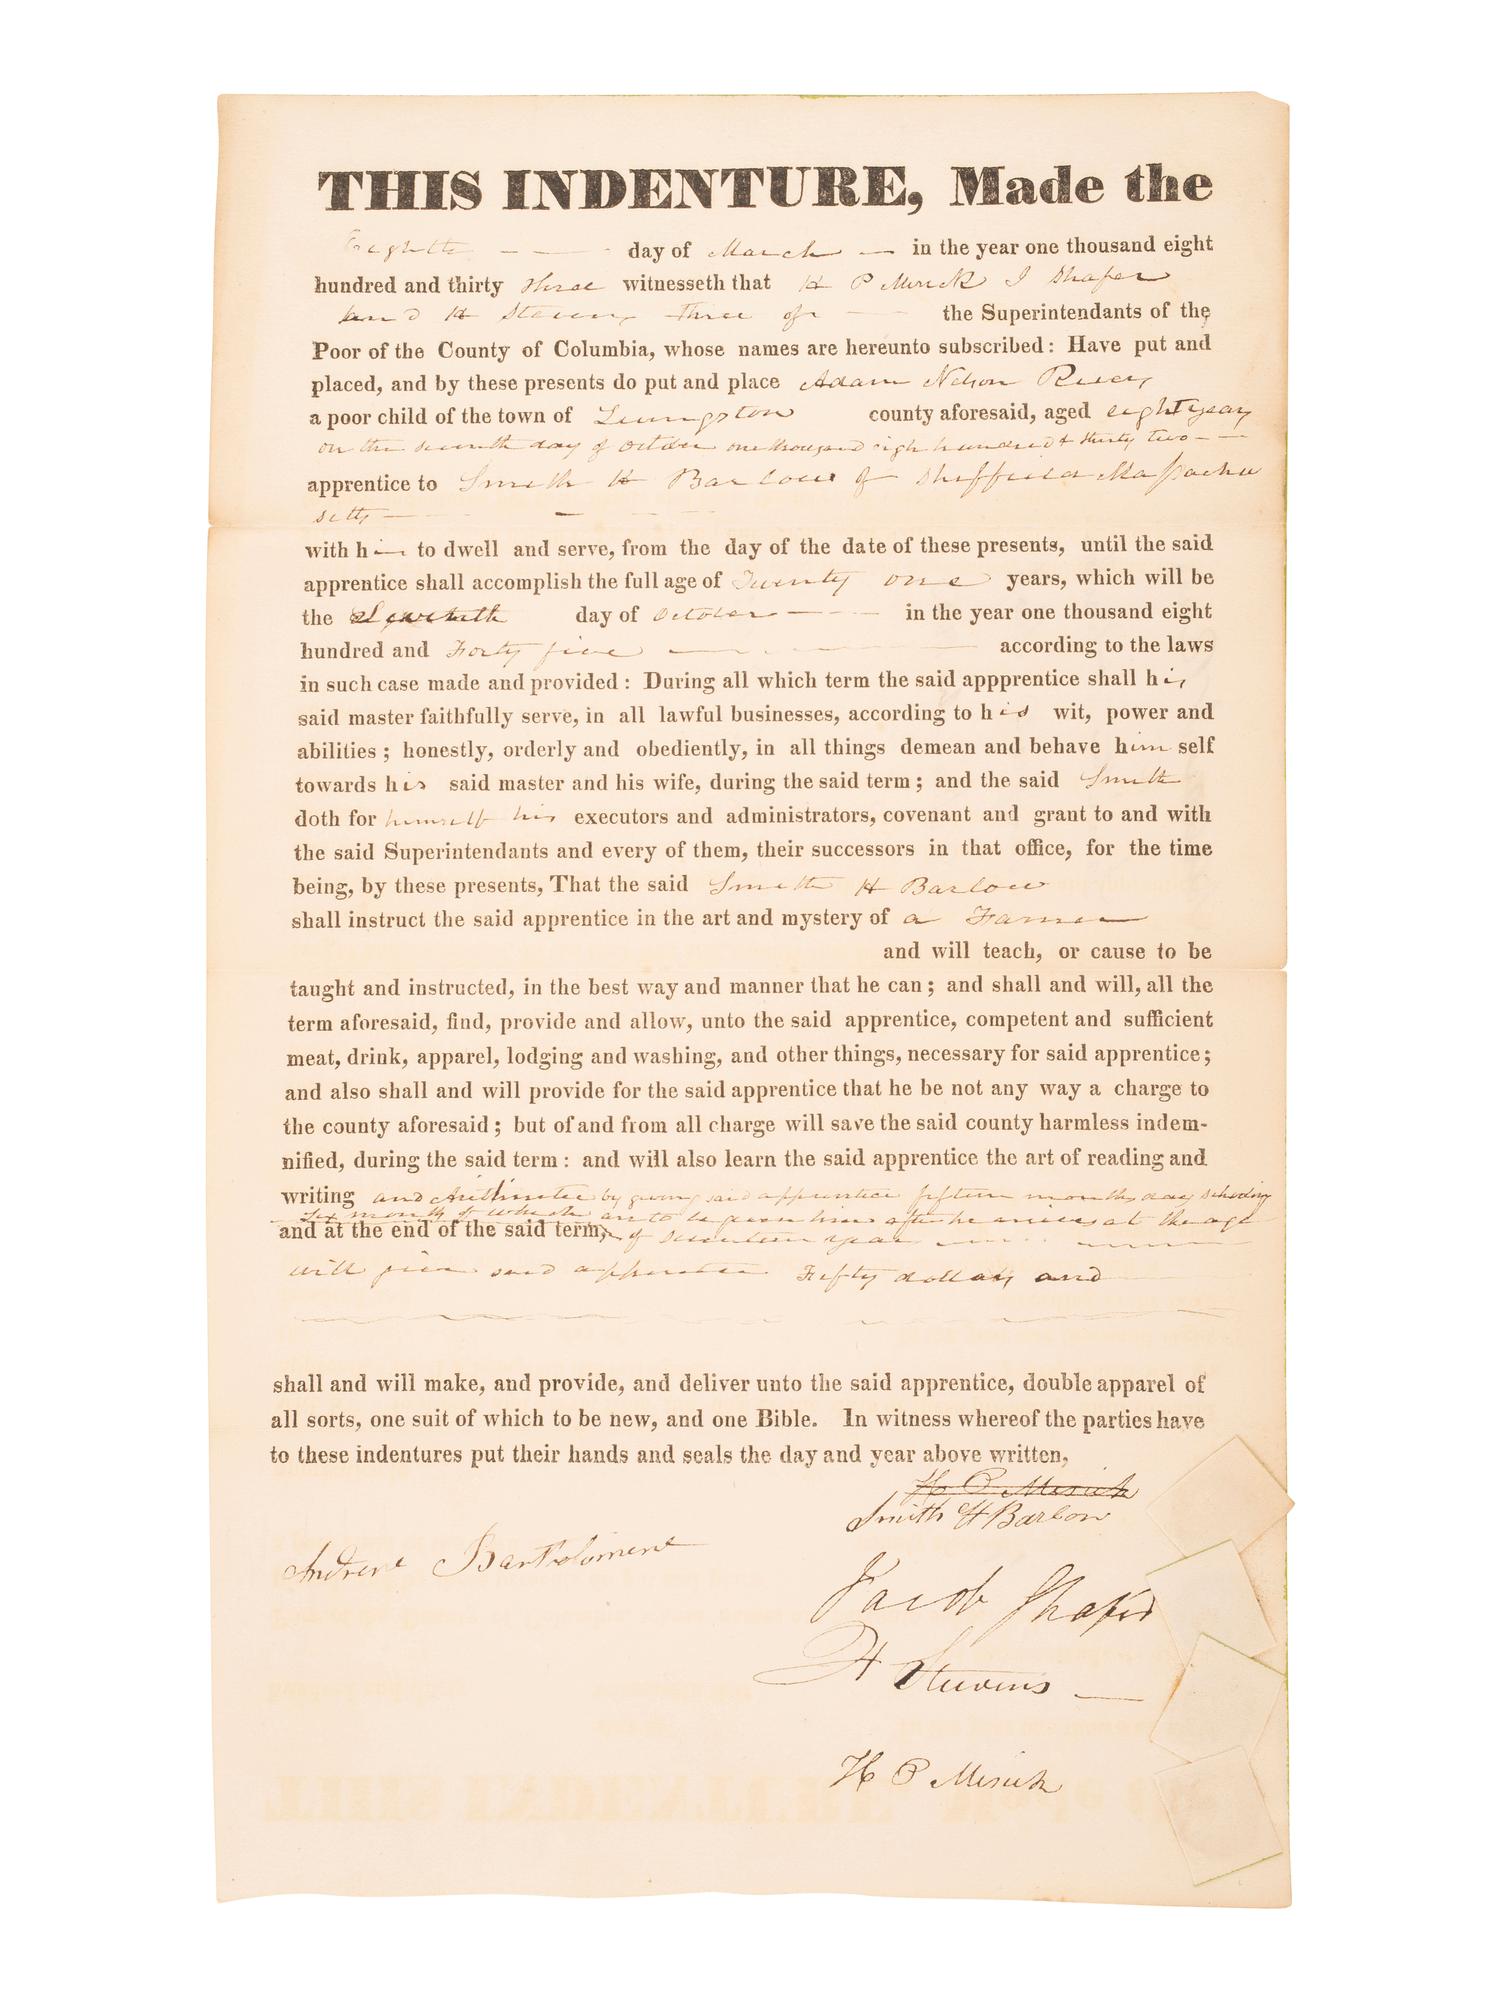 THIS INDENTURE, Made the
Eighth day of March in the year one thousand eight
hundred and thirty three witnesseth that H P Mesick J Shafer
and H Stevens three of the Superintendants of the
Poor of the County of Columbia, whose names are hereunto subscribed: Have put and
placed, and by these presents do put and place Adam Nelson
a poor child of the town of Livingston county aforesaid, aged eight years
on the seventh day of October one thousand eigh hundred & thirty two
apprentice to Smith H Barlow of Sheffield Massachu
setts
with him to dwell and serve, from the day of the date of these presents, until the said
apprentice shall accomplish the full age of Twenty one years, which will be
the Seventh day of October in the year one thousand eight
hundred and Forty five according to the laws
in such case made and provided: During all which term the said appprentice shall his
said master faithfully serve, in all lawful businesses, according to his wit, power and
abilities; honestly, orderly and obediently, in all things demean and behave him self
towards his said master and his wife, during the said term; and the said Smith
doth for himself his executors and administrators, covenant and grant to and with
the said Superintendants and every of them, their successors in that office, for the time
being, by these presents, That the said Smith H Barlow
shall instruct the said apprentice in the art and mystery of a Farmer
and will teach, or cause to be
taught and instructed, in the best way and manner that he can; and shall and will, all the
term aforesaid, find, provide and allow, unto the said apprentice, competent and sufficient
meat, drink, apparel, lodging and washing, and other things, necessary for said apprentice;
and also shall and will provide for the said apprentice that he be not any way a charge to
the county aforesaid; but of and from all charge will save the said county harmless indem-
nified, during the said term: and will also learn the said apprentice the art of reading and
writing and Arithmetic by giving said apprentice fifteen months day schooling
Six month of which are to be given him after he arrives at the age
and at the end of the said term, of seventeen year
will give said apprentice Fifty dollars and
shall and will make, and provide, and deliver unto the said apprentice, double apparel of
all sorts, one suit of which to be new, and one Bible. In witness whereof the parties have
to these indentures put their hands and seals the day and year above written,
H P Mesick
Smith H Barlow
Andrew Bartholomew
Jacob Shafer
H Stevens
H P Mesick